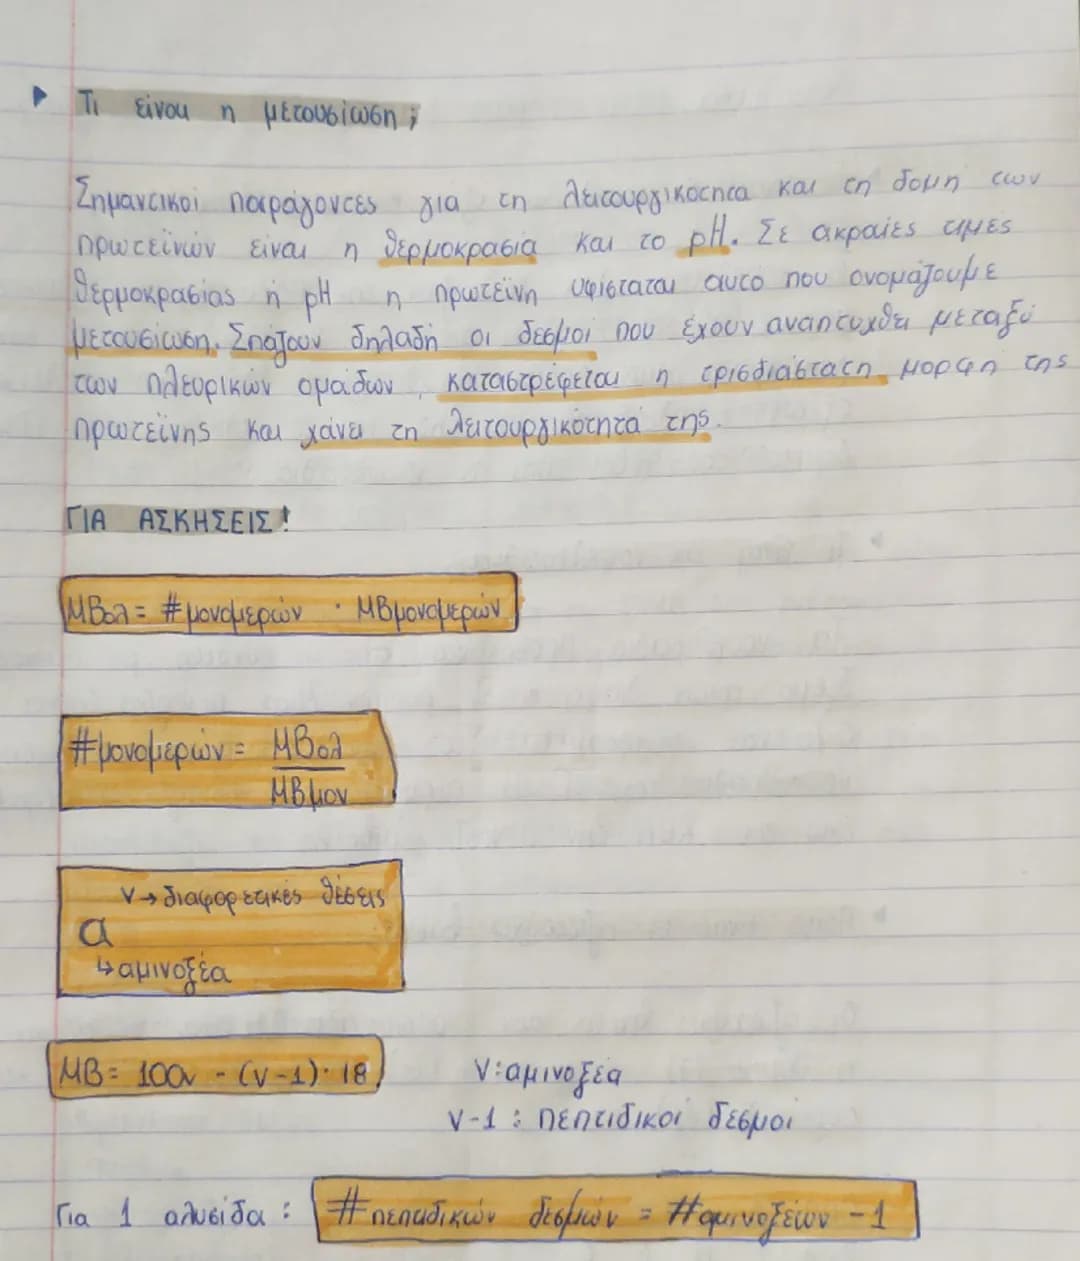 Τι είναι η μετουσίωση;
Σημαντικοί παράγοντες για τη λειτουργικότητα και τη δομή των
πρωτεϊνών είναι η θερμοκρασία και το pH. Σε ακραίες τιμές
θερμοκρασίας ή pH η πρωτεΐνη υφίσταται αυτό που ονομάζουμε
μετουσίωση. Σπάζουν δηλαδή οι δεσμοί που έχουν αναπτυχθεί μεταξύ
των πλευρικών ομάδων, καταστρέφεται η τρισδιάστατη μορφή της
πρωτεΐνης και χάνει τη λειτουργικότητά της.
ΓΙΑ ΑΣΚΗΣΕΙΣ!
ΜΒολ = #μονομερών · ΜΒμονομερών
#μονομερών = ΜΒολ
ΜΒμον
ν → διαφορετικές θέσεις
α
↳ αμινοξέα
ΜΒ = 100ν - (ν-1)·18 ν: αμινοξέα
ν-1: πεπτιδικοί δεσμοί
Για 1 αλυσίδα: #πεπτιδικών δεσμών = #αμινοξέων -1